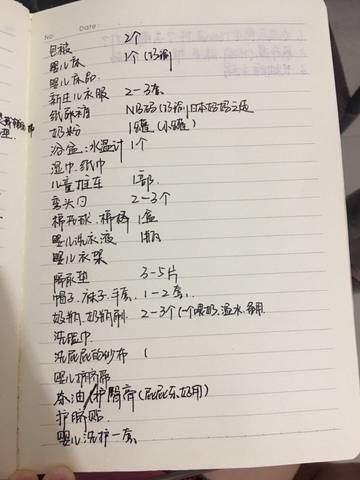 No. Date:
包被 2个
婴儿床 1个(妈湖)
婴儿床品
新生儿衣服 2-3套
纸尿裤 NB码(妈湖)日本妈妈之选
奶粉 1罐(小罐)
浴盆:水温计 1个
湿巾.纸巾
儿童推车 1部
弯头勺 2-3个
棉花球.棉棒 1盒
婴儿洗衣液 1瓶
婴儿衣架
隔尿垫 3-5片
帽子.袜子.手套. 1-2套.
奶瓶.奶瓶刷. 2-3个(一个喂奶,温水,备用
洗脸巾
洗屁屁的纱布 (
婴儿护脐带
茶油/护臀膏(屁屁乐,好用)
护脐贴
婴儿洗护一套